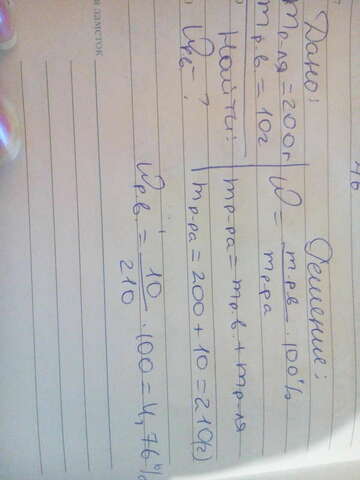 Дано:
m р-ля = 200г
m р.в = 10г
Найти:
Wрв - ?
Решение:
W = m р.в / m р-ра · 100%
m р-ра = m р.в + m р-ля
m р-ра = 200 + 10 = 210(г)
W р.в. = 10 / 210 · 100 = 4,76%